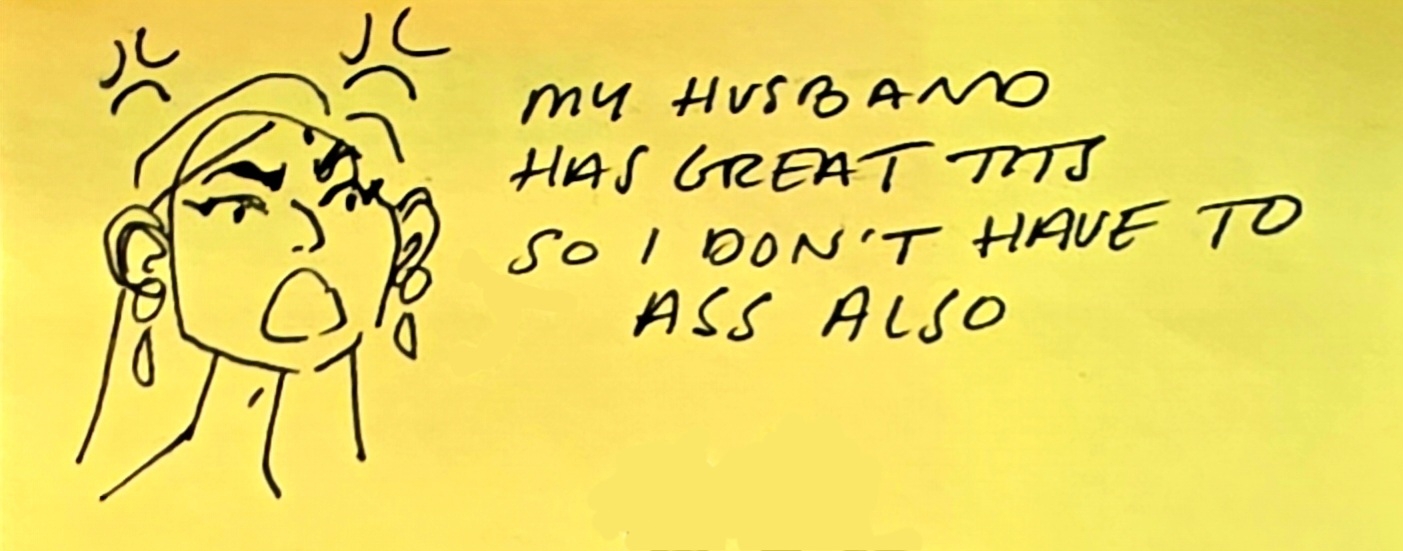 MY HUSBAND
HAS GREAT TITS
SO I DON'T HAVE TO
ASS ALSO